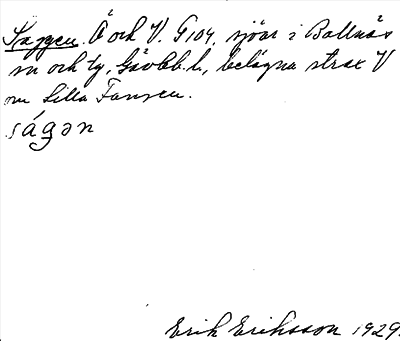 Saggen. Ö och V. G104, sjöar i Bollnäs
sn och tg, Gävleb. l., belägna strax V
om Lilla Fansen.
ságən
Erik Eriksson 1929.